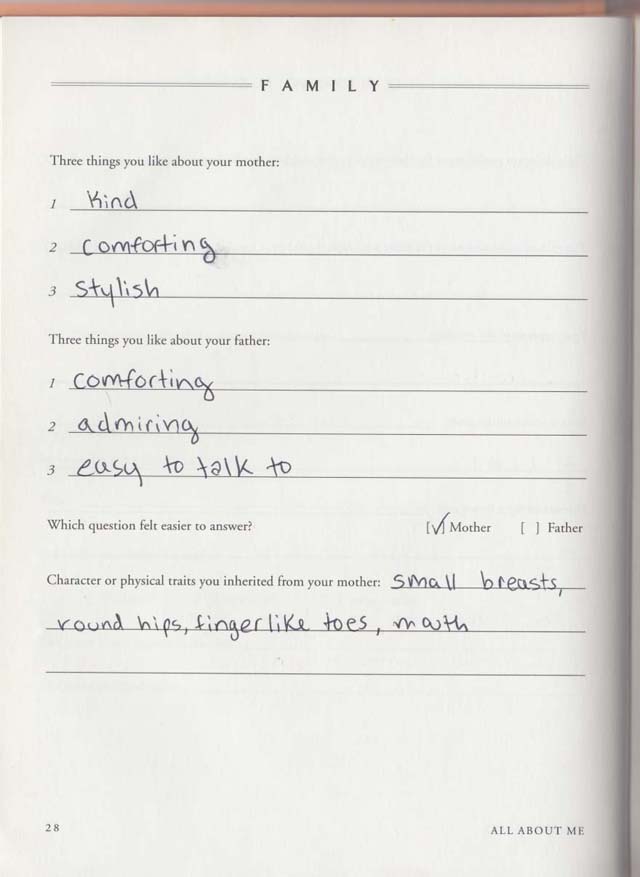 FAMILY
Three things you like about your mother:
1 Kind
2 comforting
3 stylish
Three things you like about your father:
1 comforting
2 admiring
3 easy to talk to
Which question felt easier to answer? [✓] Mother [ ] Father
Character or physical traits you inherited from your mother: small breasts,
round hips, fingerlike toes, mouth
28 ALL ABOUT ME